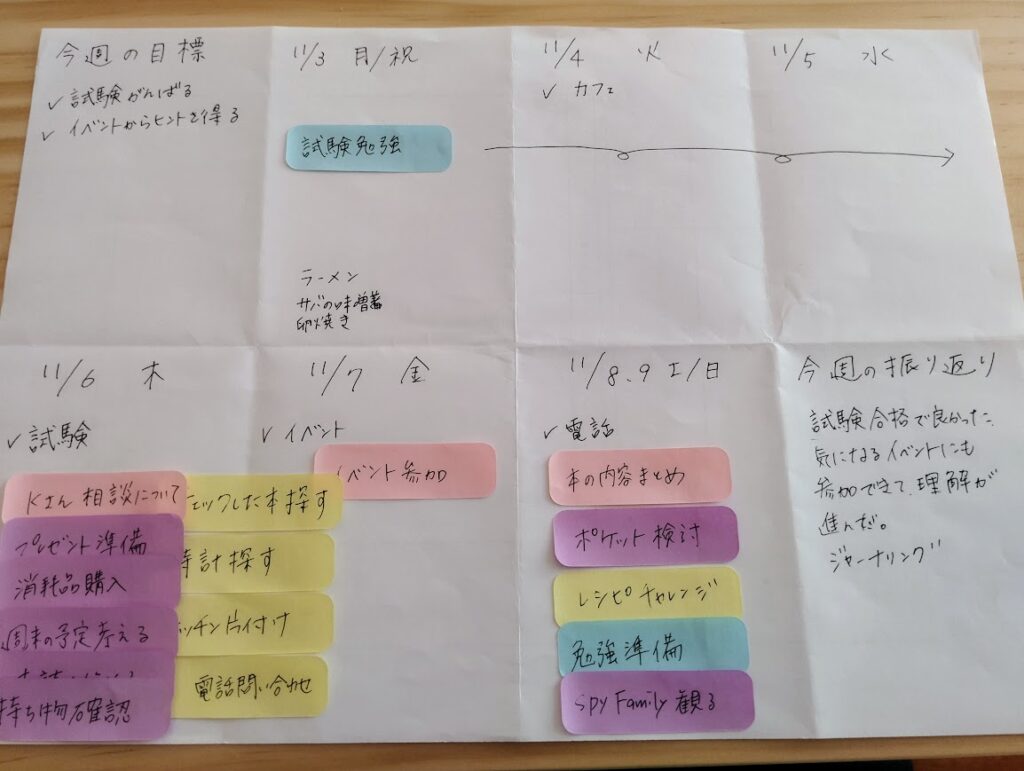 今週の目標
✓ 試験がんばる
✓ イベントからヒントを得る
11/3 月/祝
試験勉強
ラーメン
サバの味噌煮
卵焼き
11/4 火
✓ カフェ
11/5 水
11/6 木
✓ 試験
Kさん相談について
プレゼント準備
消耗品購入
週末の予定考える
持ち物確認
ェックした本探す
時計探す
ッチン片付け
電話問い合わせ
11/7 金
✓ イベント
イベント参加
11/8.9 土/日
✓ 電話
本の内容まとめ
ポケット検討
レシピチャレンジ
勉強準備
Spy Family 観る
今週の振り返り
試験合格で良かった。
気になるイベントにも
参加できて、理解が
進んだ。
ジャーナリング